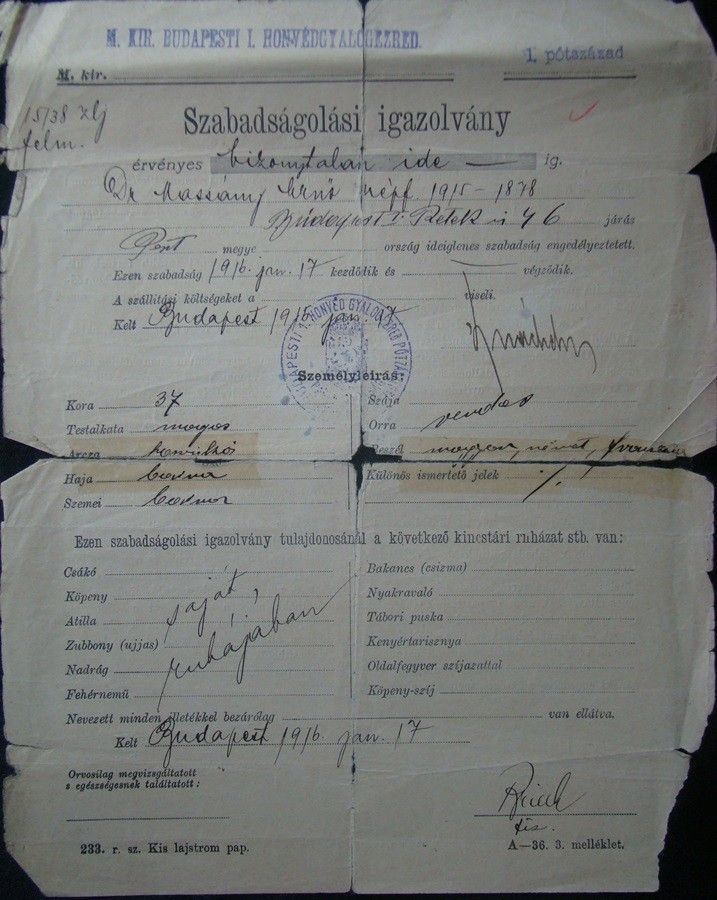 M. KIR. BUDAPESTI I. HONVÉDGYALOGEZRED.
1. pótszázad
M. kir.
15/38
felm.
Szabadságolási igazolvány
érvényes bizonytalan ide — ig.
Dr Massány Ernő népf. 1915–1878
Budapest I. Retek u 46 járás
Pest megye ország ideiglenes szabadság engedélyeztetett.
Ezen szabadság 1916 jan. 17 kezdődik és — végződik.
A szállítási költségeket a viseli.
Kelt Budapest 1916 jan. 17
BUDAPESTI 1. HONVÉD GYALOGEZRED
Személyleírás:
Kora 37
Testalkata magas
Arcza
Haja barna
Szemei barna
Szája
Orra rendes
Beszél magyar, német, francia
Különös ismertető jelek
Ezen szabadságolási igazolvány tulajdonosánál a következő kincstári ruházat stb. van:
Csákó
Köpeny
Atilla
Zubbony (ujjas)
Nadrág
Fehérnemű
saját,
ruhájában
Bakancs (csizma)
Nyakravaló
Tábori puska
Kenyértarisznya
Oldalfegyver szíjazattal
Köpeny-szíj
Nevezett minden illetékkel bezárólag van ellátva.
Kelt Budapest 1916 jan. 17
Orvosilag megvizsgáltatott
s egészségesnek találtatott:
233. r. sz. Kis lajstrom pap.
A—36. 3. melléklet.